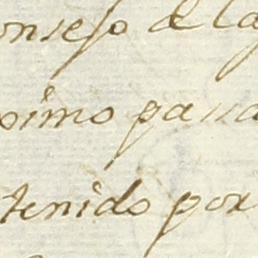 onsejo de la
ximo passa
tenido por